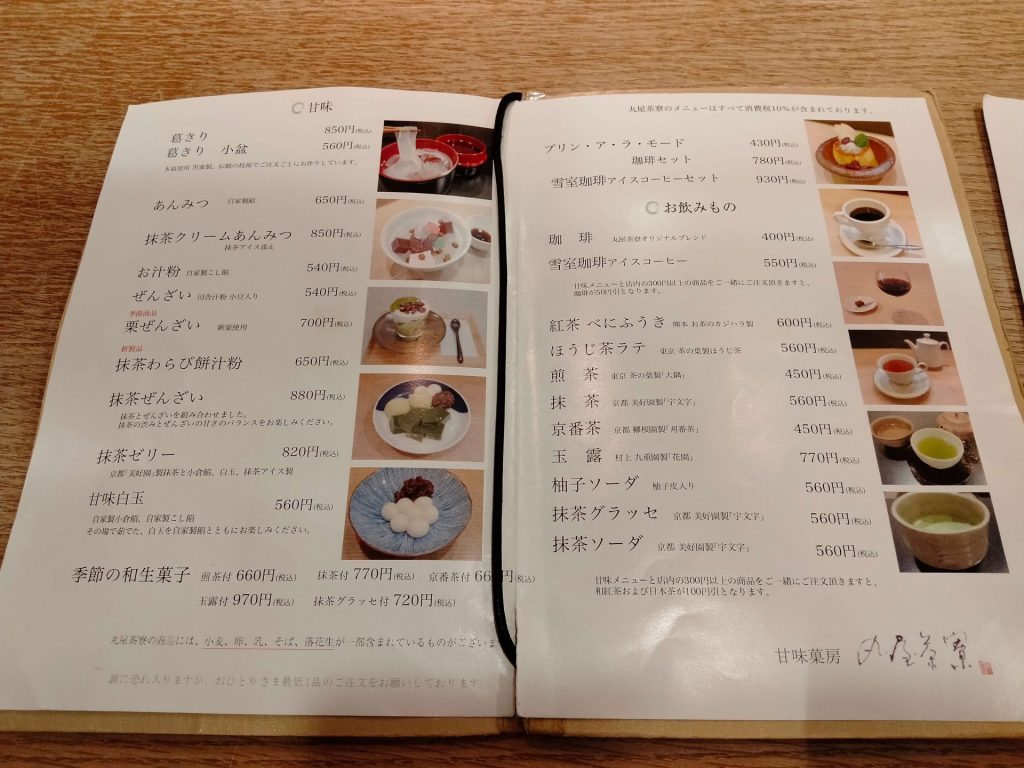 甘味
葛きり 850円(税込)
葛きり 小盆 560円(税込)
本葛使用 黒蜜製、伝統の技術でご注文ごとにお作りしています。
あんみつ 自家製餡 650円(税込)
抹茶クリームあんみつ 850円(税込)
抹茶アイス添え
お汁粉 自家製こし餡 540円(税込)
ぜんざい 田舎汁粉 小豆入り 540円(税込)
季節商品
栗ぜんざい 新栗使用 700円(税込)
新製品
抹茶わらび餅汁粉 650円(税込)
抹茶ぜんざい 880円(税込)
抹茶とぜんざいを組み合わせました。
抹茶の渋みとぜんざいの甘さのバランスをお楽しみください。
抹茶ゼリー 820円(税込)
京都「美好園」製抹茶と小倉餡、白玉、抹茶アイス製
甘味白玉 560円(税込)
自家製小倉餡、自家製こし餡
その場で茹でた、白玉を自家製餡とともにお楽しみください。
季節の和生菓子 煎茶付 660円(税込) 抹茶付 770円(税込) 京番茶付 66 円(税込)
玉露付 970円(税込) 抹茶グラッセ付 720円(税込)
丸屋茶寮の商品には、小麦、卵、乳、そば、落花生が一部含まれているものがございま
誠に恐れ入りますが、おひとりさま最低1品のご注文をお願いしております
丸屋茶寮のメニューはすべて消費税10%が含まれております。
プリン・ア・ラ・モード 430円(税込)
珈琲セット 780円(税込)
雪室珈琲アイスコーヒーセット 930円(税込)
お飲みもの
珈琲 丸屋茶寮オリジナルブレンド 400円(税込)
雪室珈琲アイスコーヒー 550円(税込)
甘味メニューと店内の300円以上の商品をご一緒にご注文頂きますと、
珈琲が50円引となります。
紅茶 べにふうき 熊本 お茶のカジハラ製 600円(税込)
ほうじ茶ラテ 東京 茶の葉製ほうじ茶 560円(税込)
煎茶 東京 茶の葉製「大隅」 450円(税込)
抹茶 京都 美好園製「宇文字」 560円(税込)
京番茶 京都 柳桜園製「刈番茶」 450円(税込)
玉露 村上 九重園製「花園」 770円(税込)
柚子ソーダ 柚子皮入り 560円(税込)
抹茶グラッセ 京都 美好園製「宇文字」 560円(税込)
抹茶ソーダ 京都 美好園製「宇文字」 560円(税込)
甘味メニューと店内の300円以上の商品をご一緒にご注文頂きますと、
和紅茶および日本茶が100円引となります。
甘味菓房 丸屋茶寮